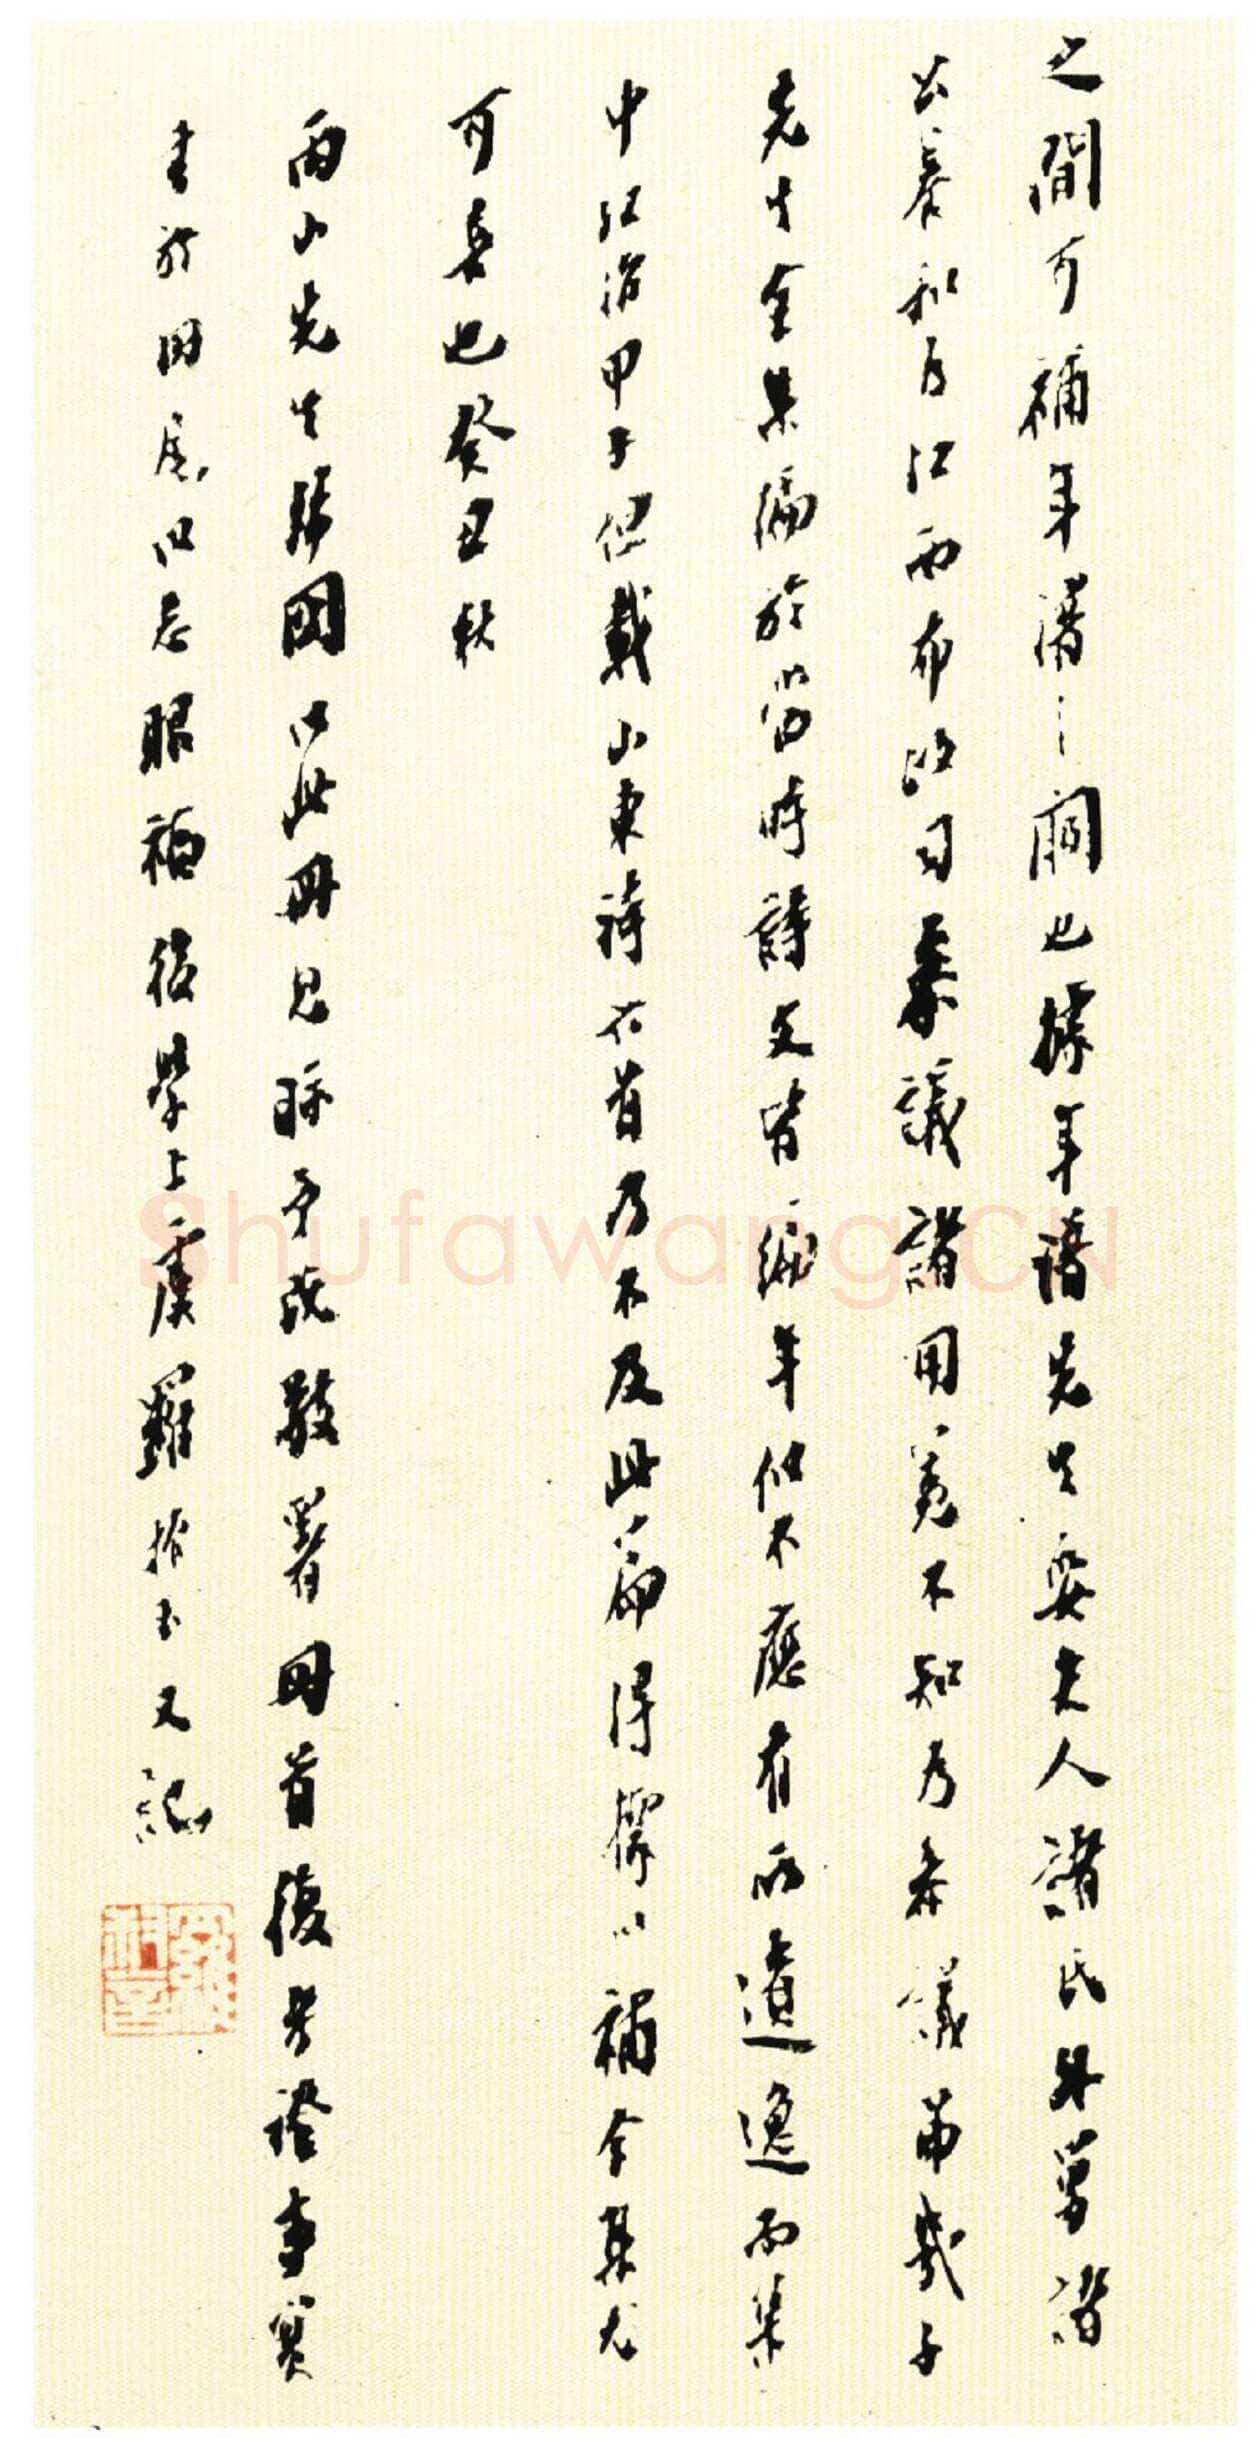 之間可補年譜之闕也據年譜先生娶夫人諸氏外舅諸
公養和為江西布政司參議諸用冕不知為參議第幾子
先生全集編於當時詩文皆編年似不應有所遺逸而集
中弘治甲子但載山東詩六首乃不及此篇得據以補全集尤
可喜也癸丑秋
雨山先生歸國以此冊見眎予既敬署冊首復考證事實
書於冊尾以志眼福後學上虞羅振玉又記
ShufawangCN